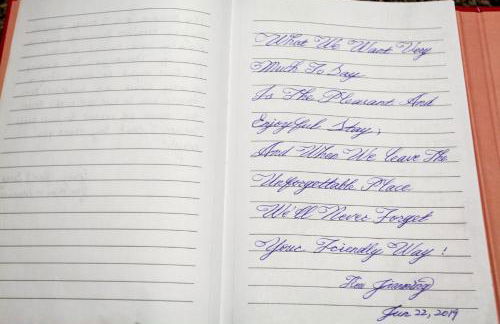 What We Want Very
Much To Say
Is The Pleasant And
Enjoyful Stay,
And When We leave The
Unforgettable Place
We'll Never Forget
Your Friendly Way !
Jun 22, 2019